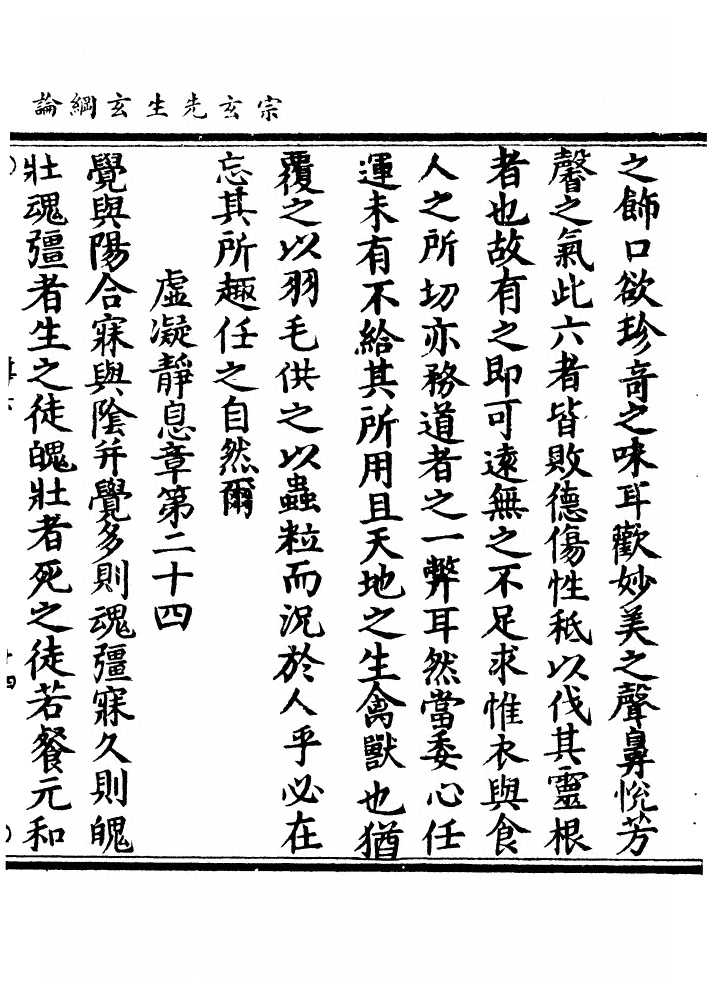 宗玄先生玄綱論
之飾口欲珍奇之味耳歡妙美之聲鼻恱芳
馨之氣此六者皆敗德傷性秖以伐其靈根
者也故有之即可遠無之不足求惟衣與食
人之所切亦務道者之一弊耳然當委心任
運未有不給其所用且天地之生禽獸也猶
覆之以羽毛供之以蟲粒而況於人乎必在
忘其所趣任之自然爾
虛凝靜息章第二十四
覺與陽合寐與陰并覺多則魂彊寐久則魄
壯魂彊者生之徒魄壯者死之徒若餐元和
十四